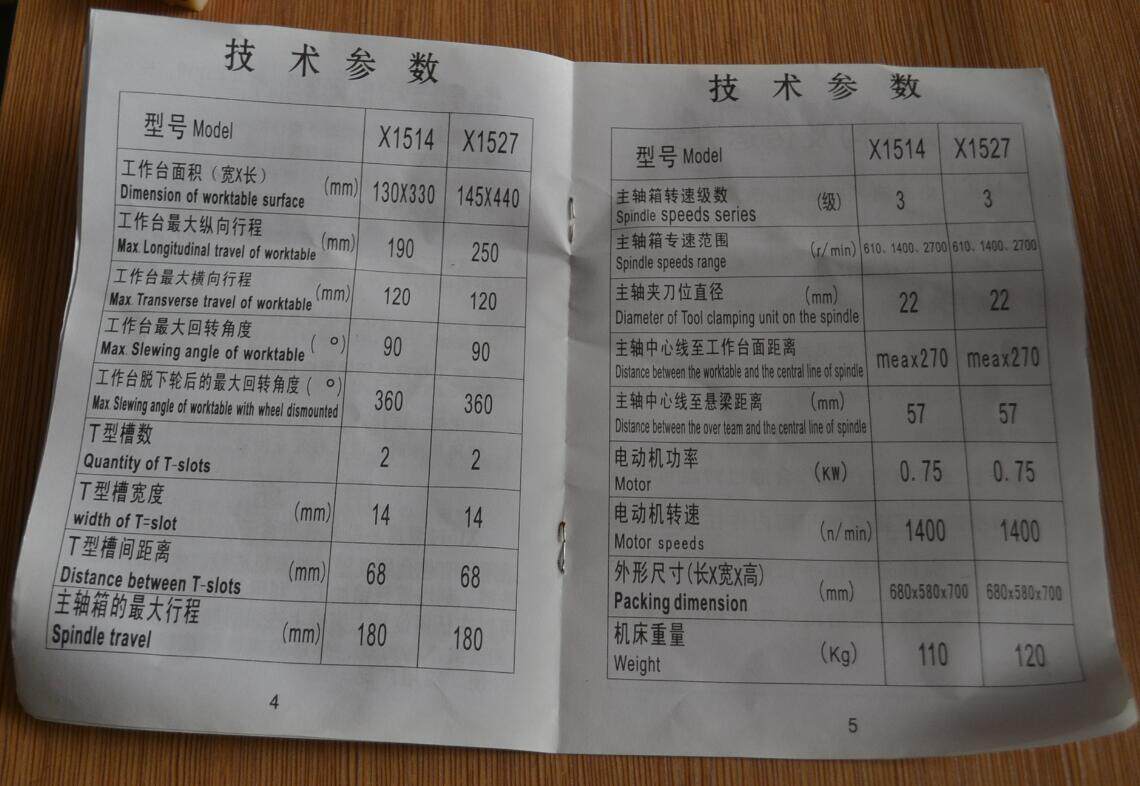 技术参数
型号 Model X1514 X1527
工作台面积（宽X长）
Dimension of worktable surface (mm) 130X330 145X440
工作台最大纵向行程
Max. Longitudinal travel of worktable (mm) 190 250
工作台最大横向行程
Max. Transverse travel of worktable (mm) 120 120
工作台最大回转角度
Max. Slewing angle of worktable ( °) 90 90
工作台脱下轮后的最大回转角度( °)
Max. Slewing angle of worktable with wheel dismounted 360 360
T型槽数
Quantity of T-slots 2 2
T型槽宽度
width of T=slot (mm) 14 14
T型槽间距离
Distance between T-slots (mm) 68 68
主轴箱的最大行程
Spindle travel (mm) 180 180
4
技术参数
型号 Model X1514 X1527
主轴箱转速级数
Spindle speeds series (级) 3 3
主轴箱专速范围
Spindle speeds range (r/min) 610、1400、2700 610、1400、2700
主轴夹刀位直径 (mm)
Diameter of Tool clamping unit on the spindle 22 22
主轴中心线至工作台面距离
Distance between the worktable and the central line of spindle meax270 meax270
主轴中心线至悬梁距离 (mm)
Distance between the over team and the central line of spindle 57 57
电动机功率
Motor (KW) 0.75 0.75
电动机转速
Motor speeds (n/min) 1400 1400
外形尺寸(长X宽X高)
Packing dimension (mm) 680x580x700 680x580x700
机床重量
Weight (Kg) 110 120
5